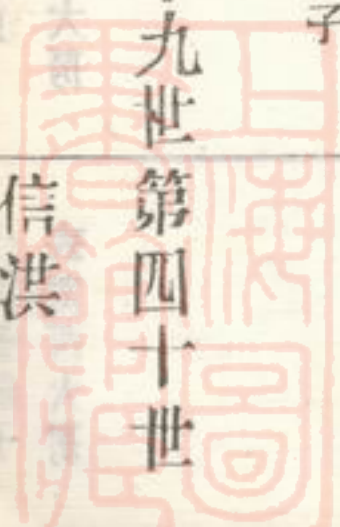 子
九世
第四十世
信洪
上海圖書館藏